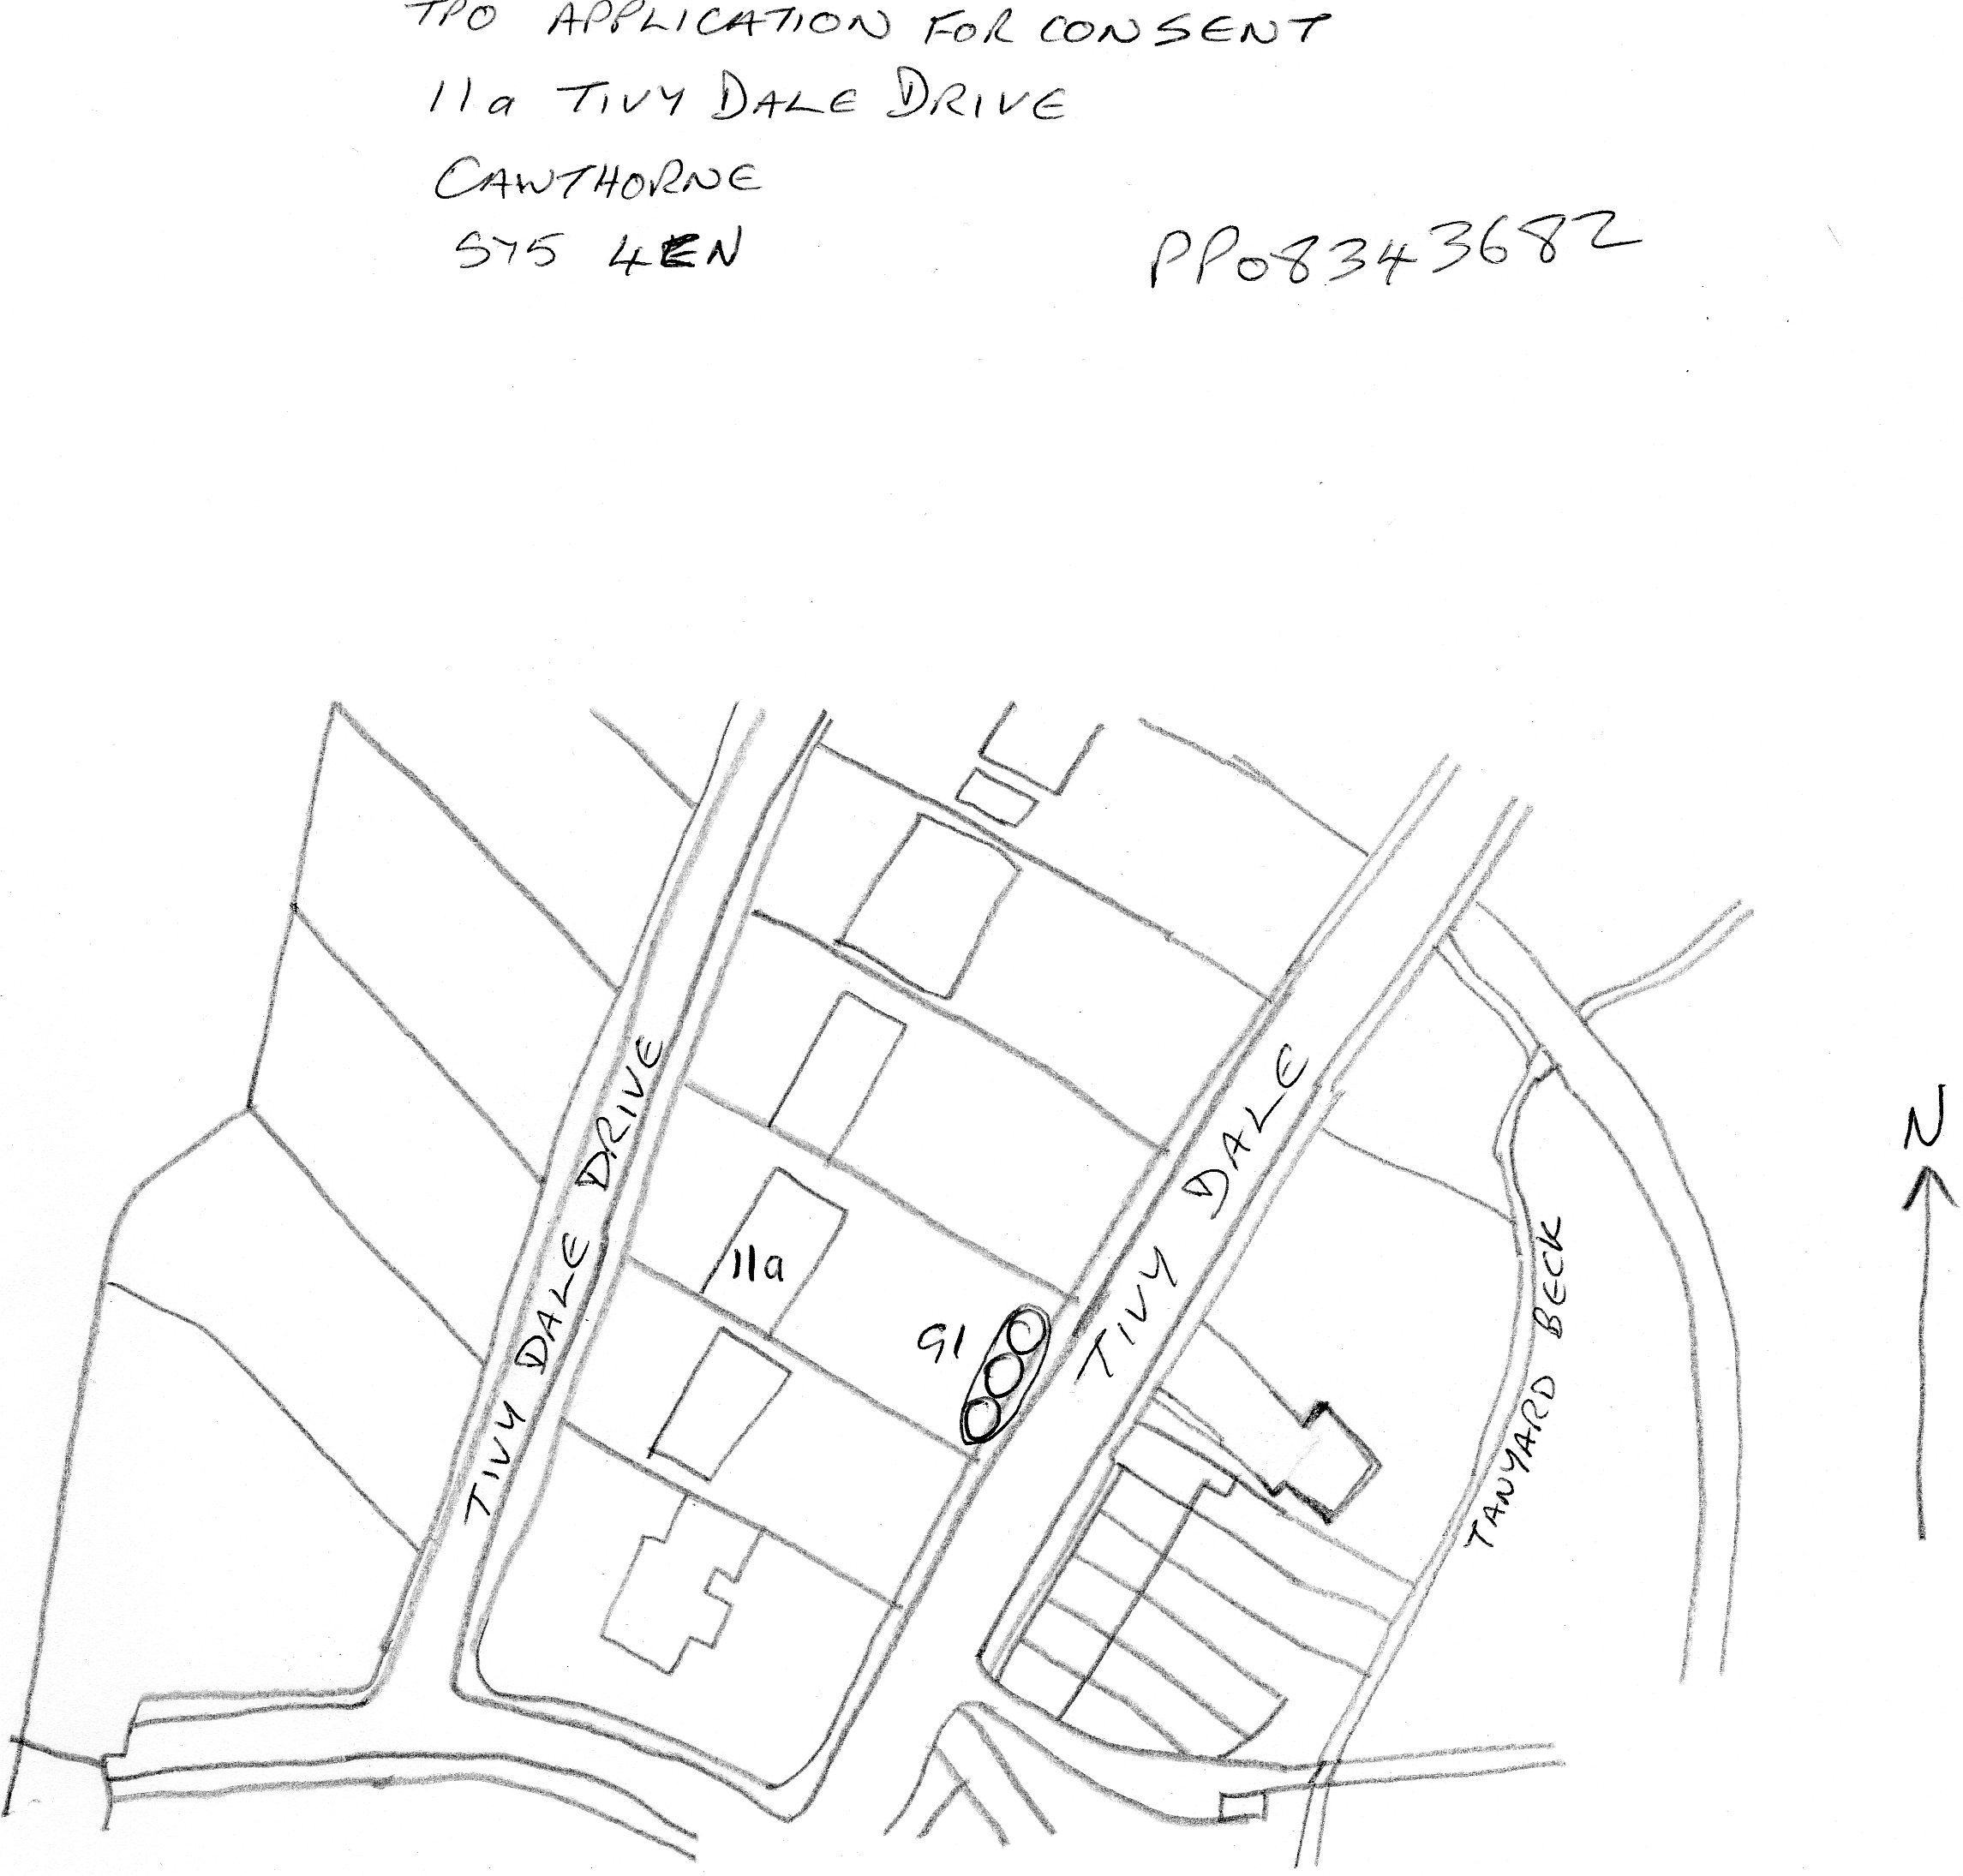 TPO APPLICATION FOR CONSENT
11a TIVY DALE DRIVE
CAWTHORNE
S75 4EN
PP08343682
TIVY DALE DRIVE
TIVY DALE
11a
G1
TANYARD BECK
N